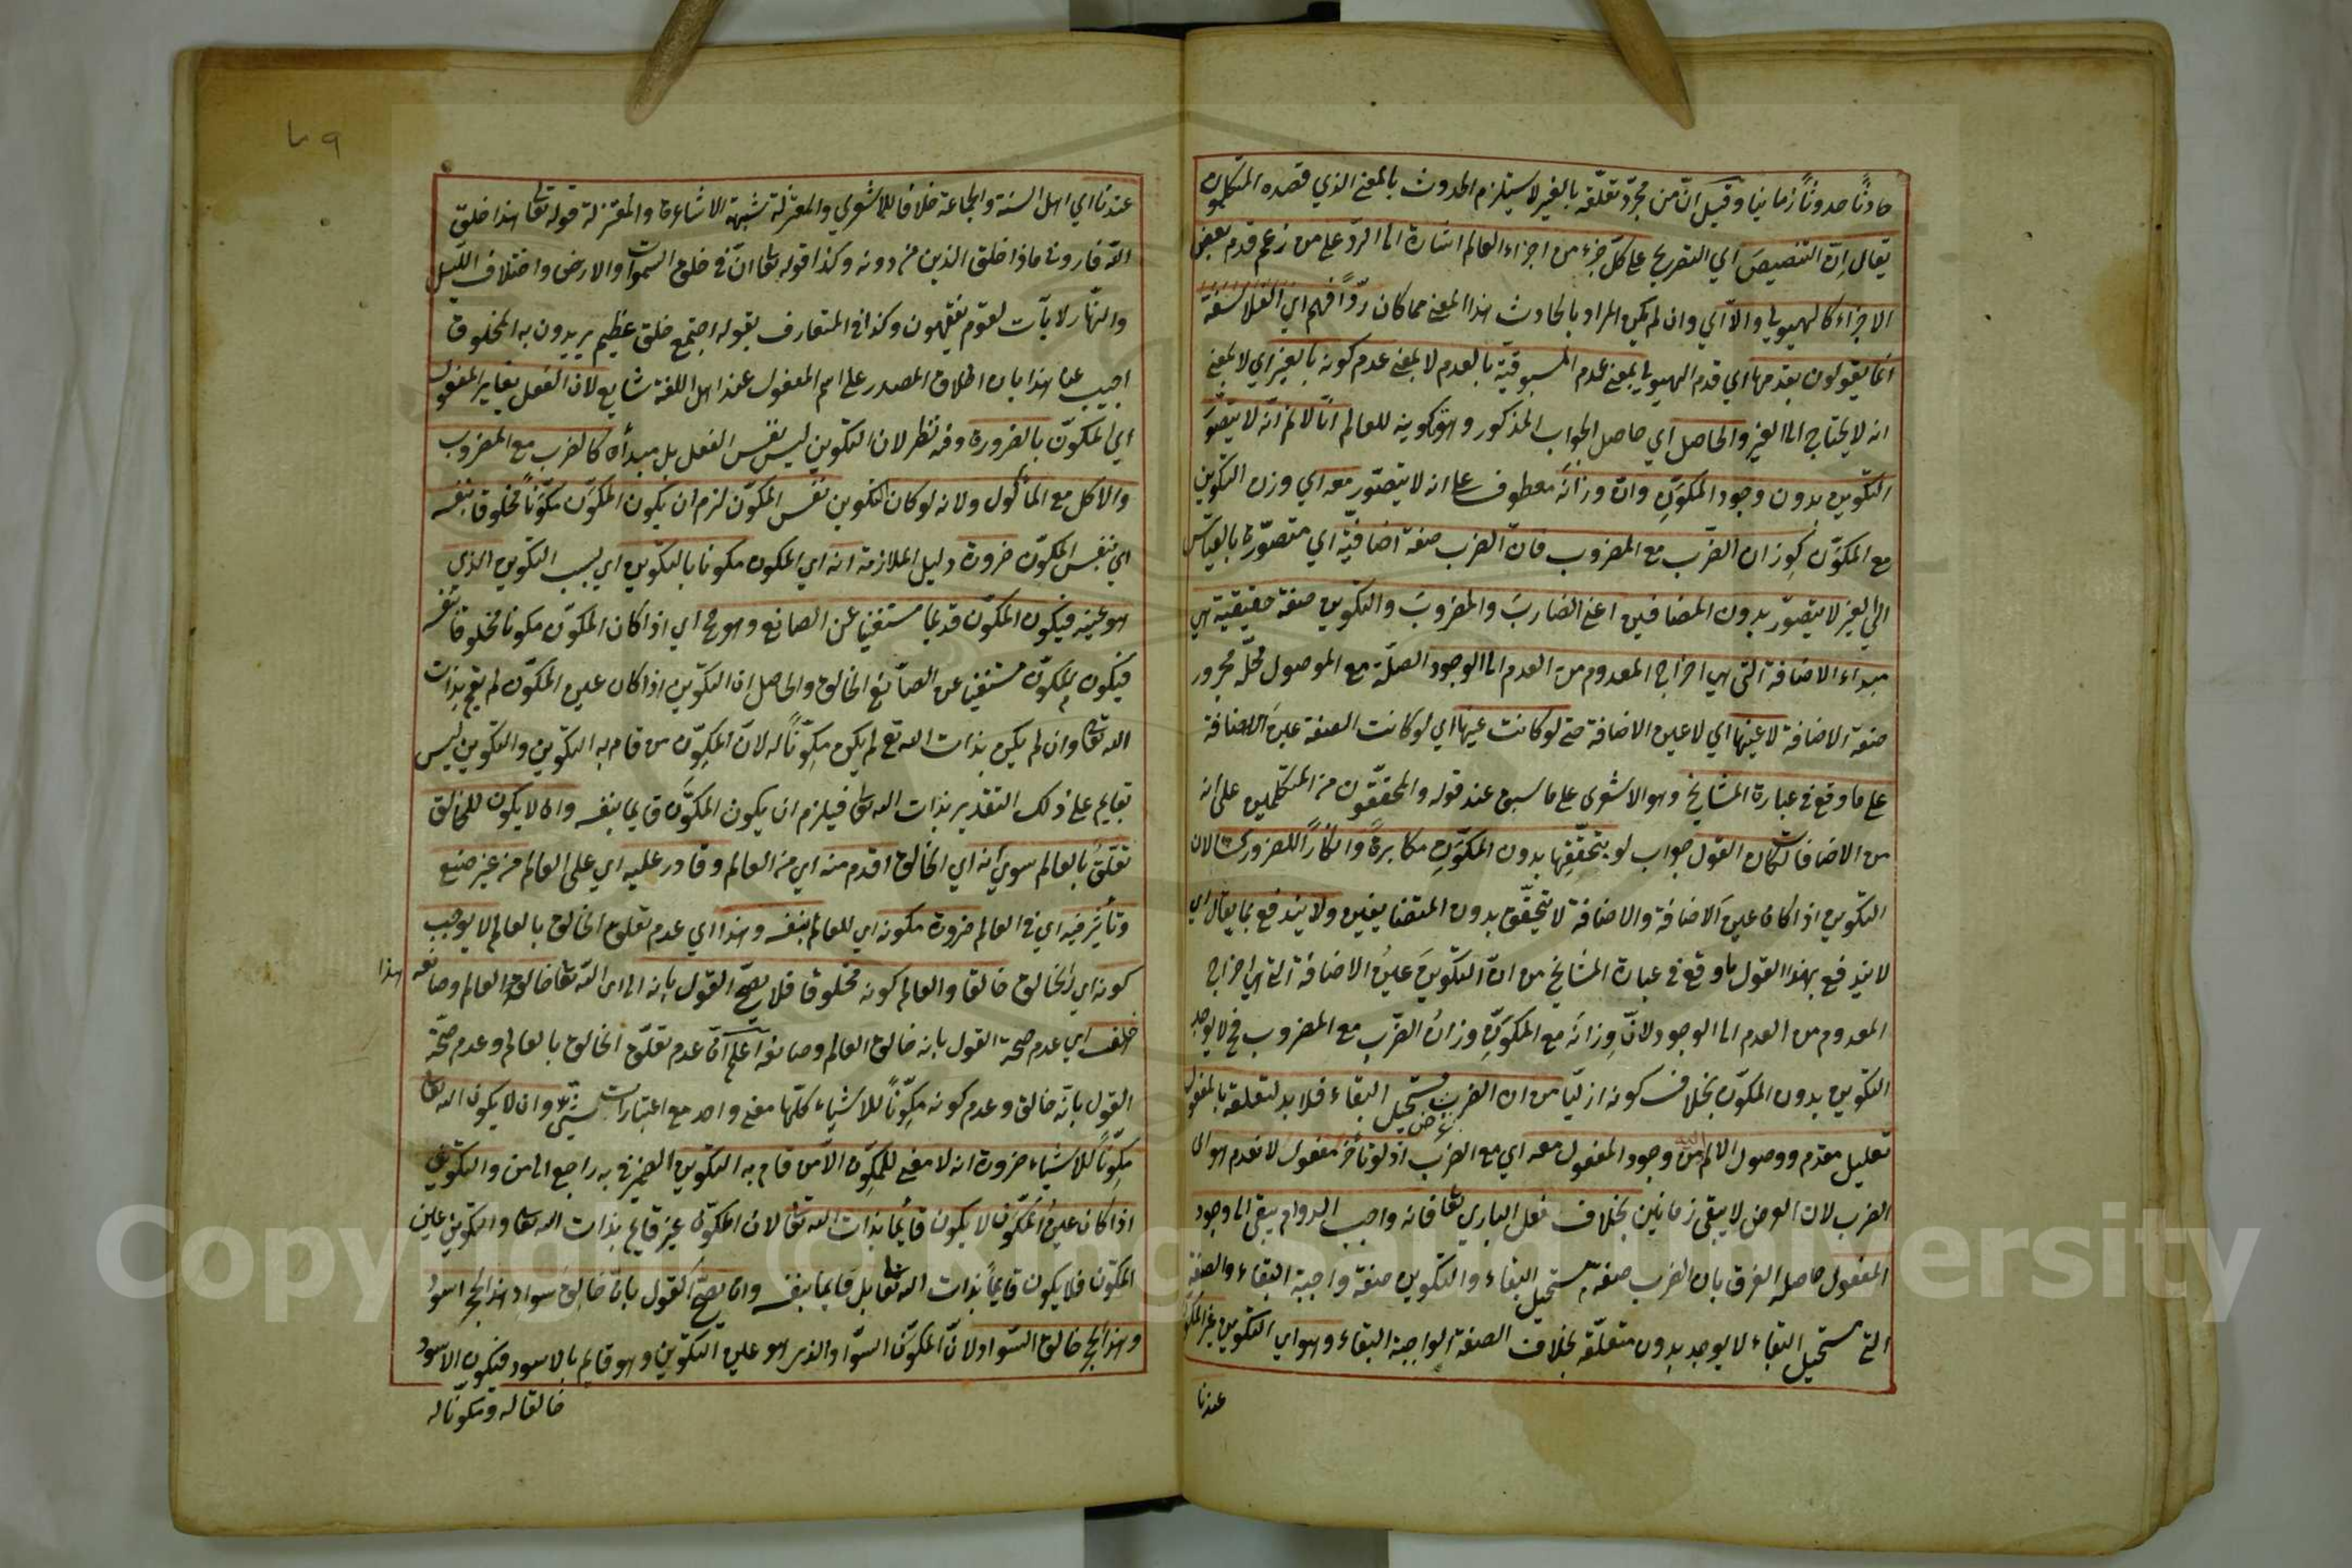 حادثًا حدوثًا زمانيا وقيل انّ من مجرّد تعلّقه بالغير لا يستلزم الحدوث بالمعنى الذي قصده المتكلمون
يقال ان التنصيص اي التصريح على كلّ جزء من اجزاء العالم اشارة الى الردّ على من زعم قدم بعض
الاجزاء كالهيولي والّا اي وان لم يكن المراد بالحادث هذا المعنى مما كان ردّاً فهم اي الفلاسفة
انما يقولون بقدمها اي قدم الهيولي بمعنى عدم المسبوقيّة بالعدم لا بمعنى عدم كونه بالغير اي لا بمعنى
انه لا يحتاج الى الغير والحاصل اي حاصل الجواب المذكور وهو تكوينه للعالم انّا لا نم انّه لا يتصوّر
التكوين بدون وجود المكوّن وانّ وزانه معطوف على انه لا يتصوّر معه اي وزن التكوين
مع المكوّن كوزان الضرب مع المضروب فانّ الضرب صفة اضافيّة اي متصوّرة بالقياس
الى الغير لا يتصوّر بدون المضافين اعني الضاربَ والمضروبَ والتكوين صفة حقيقية هي
مبداء الاضافة التي هي اخراج المعدوم من العدم الى الوجود الصلّة مع الموصول محلّه مجرور
صفة الاضافة لا عينها اي لا عين الاضافة حتى لو كانت عينها اي لو كانت الصفة عين الاضافة
على ما وقع في عبارة المشايخ وهو الاشعرى على ما سبق عند قوله والمحققون من المتكلمين على انه
من الاضافات لكان القول جواب لو بتحقّقها بدون المكوّن مكابرةً وانكاراً للضروريات لان
التكوين اذا كان عين الاضافة والاضافة لا تتحقّق بدون المتضايفين ولا يندفع بما يقال اي
لا يندفع بهذا القول ما وقع في عبارة المشايخ من انّ التكوينَ عينُ الاضافة التي هي اخراج
المعدوم من العدم الى الوجود لانّ وزانَه مع المكوّن وزانُ الضرب مع المضروب فح لا يوجد
التكوين بدون المكوّن بخلاف كونه ازليّا من ان الضرب عرض مستحيل البقاء فلا بد لتعلقه بالمفعول
تعليل مقدم ووصول الالم اليه من وجود المفعول معه اي مع الضرب اذ لو تأخّر مفعول لانعدم هو اى
الضرب لان العرض لا يبقى زمانين بخلاف فعل الباري تعا فانه واجب الدوام يبقى الى وجود
المفعول حاصله الفرق بان الضرب صفة مستحيل البقاء والتكوين صفة واجبة البقاء والصفة
التي مستحيل البقاء لا يوجد بدون متعلّقه بخلاف الصفة الواجبة البقاء وهو اي التكوين غير المكوّن
عندنا
عندنا اي اهل السنة والجماعة خلافا للاشعري والمعتزلة شبهة الاشاعرة والمعتزلة قوله تعا هذا خلق
الله فاروني ماذا خلق الذين من دونه وكذا قوله تعا انّ في خلق السموات والارض واختلاف الليل
والنهار لايآت لقوم يفقهون وكذا في المتعارف بقوله اجتمع خلق عظيم يريدون به المخلوق
اجيب عن هذا بان اطلاق المصدر على اسم المفعول عند اهل اللغة شايع لان الفعل يغاير المفعول
اي المكوّن بالضرورة وفيه نظر لان التكوين ليس نفس الفعل بل مبدأه كالضرب مع المضروب
والاكل مع المأكول ولانه لو كان التكوين نفس المكوّن لزم ان يكون المكوّن مكوّناً مخلوقا بنفسه
اي بنفس المكوّن ضرورة دليل الملازمة انه اي المكون مكونا بالتكوين اي بسبب التكوين الذي
هو عينه فيكون المكوّن قديما مستغنيا عن الصانع وهو مح اي اذا كان المكوّن مكونا مخلوقا بنفسه
فيكون المكوّن مستغنيا عن الصّانع الخالق والحاصل ان التكوين اذا كان عين المكوّن لم يقم بذات
الله تعا وان لم يكن بذات الله تع لم يكن مكوّناً له لانّ المكوّن من قام به التكوين والتكوين ليس
بقايم على ذلك التقدير بذات الله تعا فيلزم ان يكون المكوّن قايما بنفسه وان لا يكون للخالق
تعلّقٌ بالعالم سوي انه اي الخالق اقدم منه اي من العالم وقادر عليه اي على العالم من غير صنع
وتأثير فيه اي في العالم ضرورة مكونه اي للعالم بنفسه وهذا اي عدم تعلق الخالق بالعالم لا يوجب
كونه اي الخالق خالقا والعالم كونه مخلوقا فلا يصحّ القول بانه اى ان الله تعا خالق العالم وصانعه هذا
خلف اي عدم صحة القول بانه خالق العالم وصانعه اعلم انّ عدم تعلّق الخالق بالعالم وعدم صحّة
القول بانّه خالق وعدم كونه مكوّناً للاشياء كلّها معنى واحد مع اعتبارات شتى وان لا يكون الله تعا
مكوّناً للاشياء ضرورة انه لا معنى للمكوّن الّا من قام به التكوين الضمير في به راجع الى من والتكوين
اذا كان عين المكوّن لا يكون قائما بذات الله تعا لان المكوّن غير قايم بذات الله تعا والتكوين عين
المكوّن فلا يكون قايماً بذات الله تعا بل قايما بنفسه وان يصحّ القول بانّ خالق سواد هذا الحجر اسود
وهذا الحجر خالق السّواد لانّ المكوّن السّواد الذي هو عين التكوين وهو قايم بالاسود فيكون الاسود
خالقا له ومكوّنا له